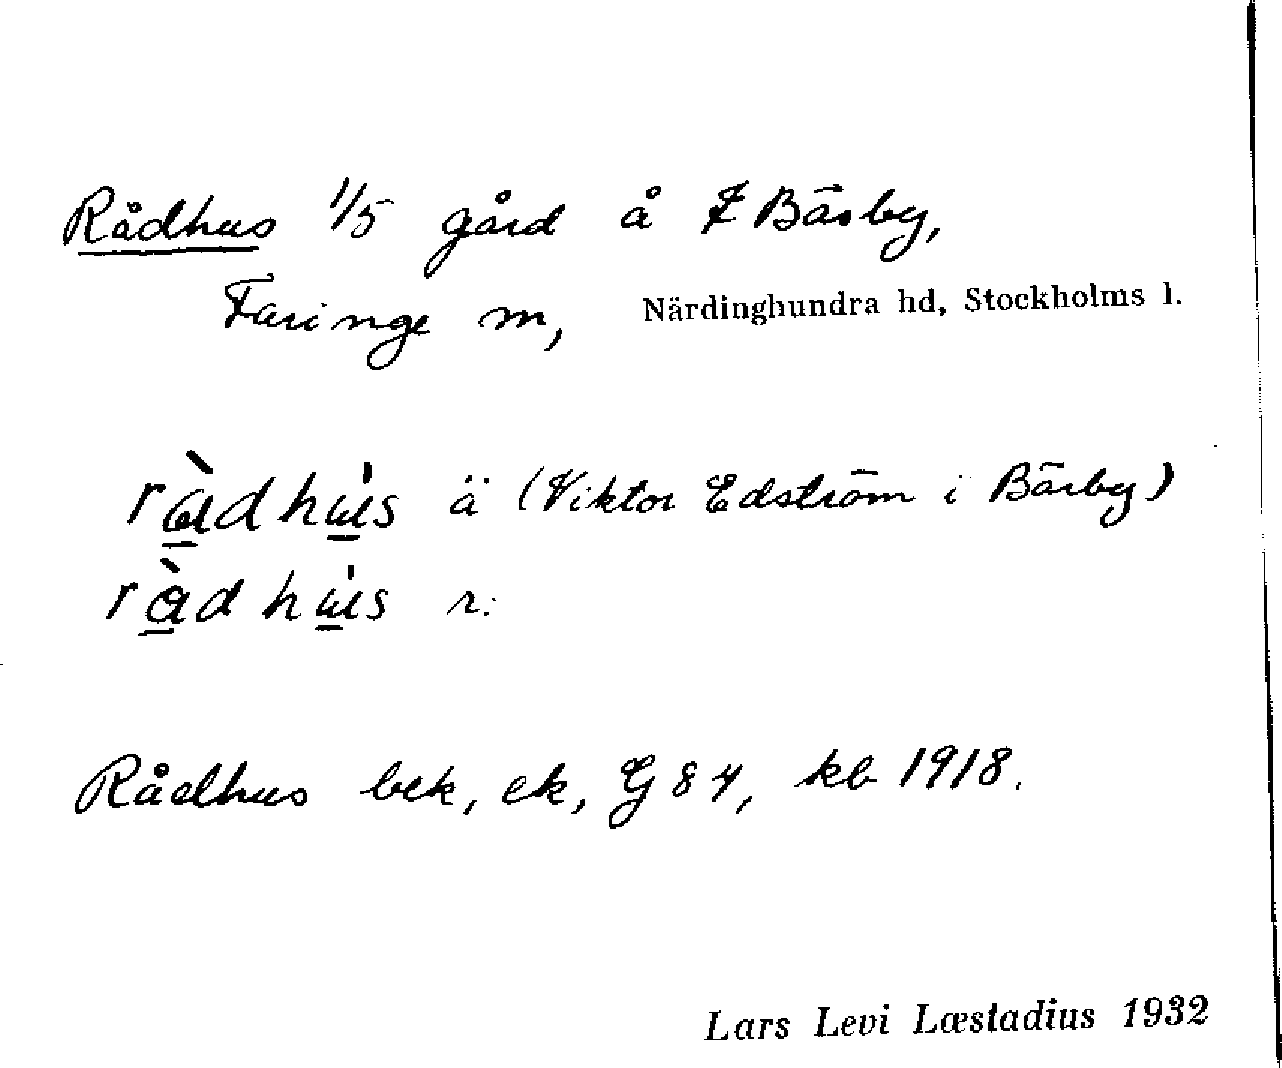 Rådhus 1/5 gård å Bärby,
Faringe sn, Närdinghundra hd, Stockholms l.
ràdhu̍s ä (Viktor Edström i Bärby)
ràdhu̍s r.
Rådhus bek, ek, G 84, kb 1918.
Lars Levi Læstadius 1932